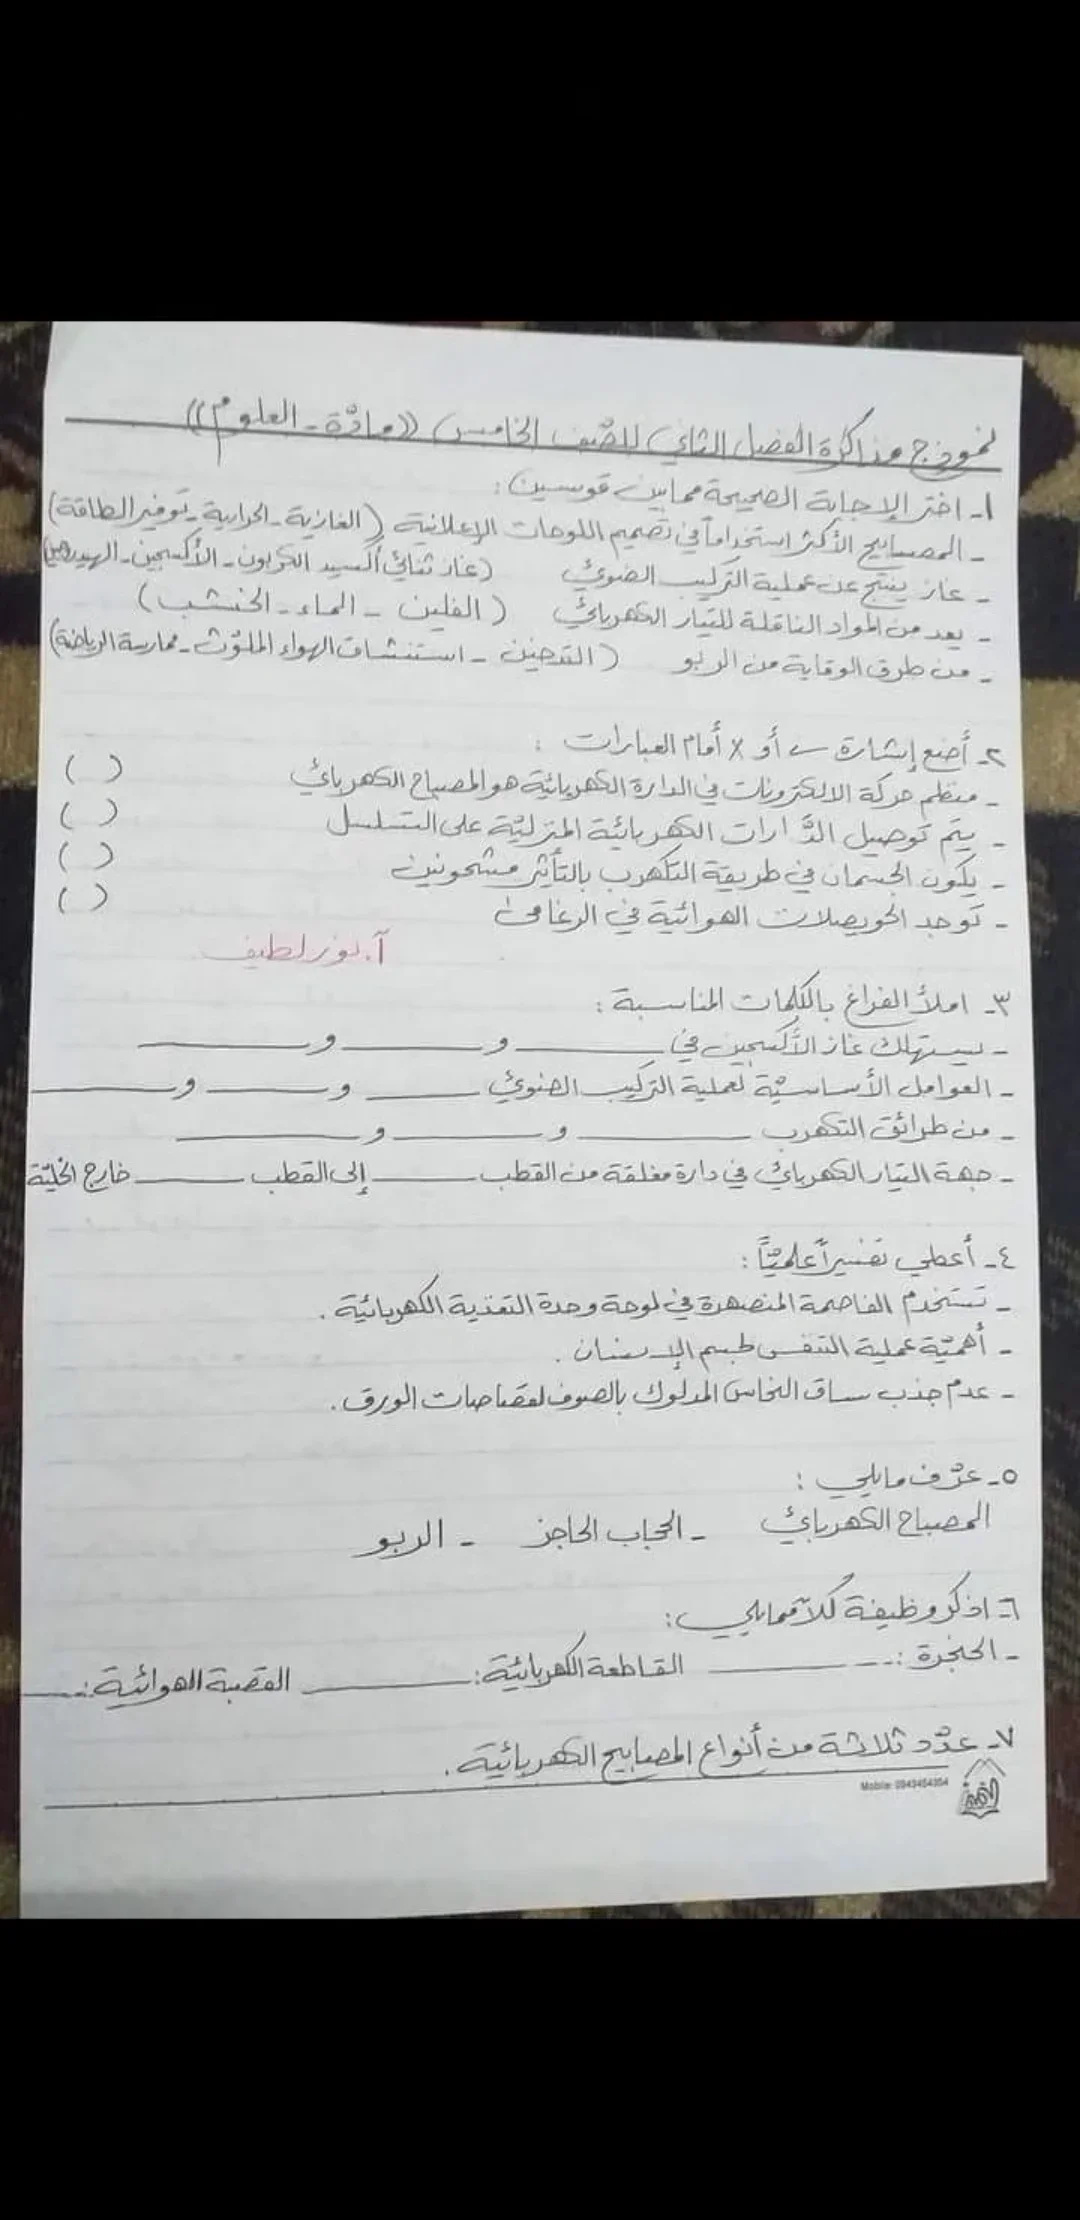 نموذج مذاكرة الفصل الثاني للصّف الخامس ((مادّة - العلوم))
١- اختر الإجابة الصحيحة ممابين قوسين :
- المصابيح الأكثر استخداماً في تصميم اللوحات الإعلانية (الغازية - الحرارية - توفير الطاقة)
- غاز ينتج عن عملية التركيب الضوئي (غاز ثنائي أكسيد الكربون - الأكسجين - الهيدروجين)
- يعد من المواد الناقلة للتيار الكهربائي ( الفلين - الماء - الخشب )
- من طرق الوقاية من الربو ( التدخين - استنشاق الهواء الملوّث - ممارسة الرياضة)
٢- أضع إشارة ✓ أو x أمام العبارات :
- منظم حركة الالكترونات في الدارة الكهربائية هو المصباح الكهربائي ( )
- يتم توصيل الدَّارات الكهربائية المنزليّة على التسلسل ( )
- يكون الجسمان في طريقة التكهرب بالتأثير مشحونين ( )
- توجد الحويصلات الهوائية في الرغامى ( )
آ. نور لطيف
٣- املأ الفراغ بالكلمات المناسبة :
- يستهلك غاز الأكسجين في ــــــ و ــــــ و ــــــ
- العوامل الأساسيّة لعملية التركيب الضوئي ــــــ و ــــــ و ــــــ
- من طرائق التكهرب ــــــ و ــــــ و ــــــ
- جهة التيار الكهربائي في دارة مغلقة من القطب ــــــ إلى القطب ــــــ خارج الخليّة
٤- أعطي تفسيراً علميّاً :
- تستخدم الفاصمة المنصهرة في لوحة وحدة التغذية الكهربائية .
- أهميّة عملية التنفس لجسم الإنسان .
- عدم جذب ساق النحاس المدلوك بالصوف لقصاصات الورق .
٥- عرّف مايلي :
المصباح الكهربائي - الحجاب الحاجز - الربو
٦- اذكر وظيفة كلاً ممايلي :
- الحنجرة : ــــــ القاطعة الكهربائية: ــــــ القصبة الهوائية: ــــــ
٧- عدّد ثلاثة من أنواع المصابيح الكهربائية .
Mobile: 0943454354